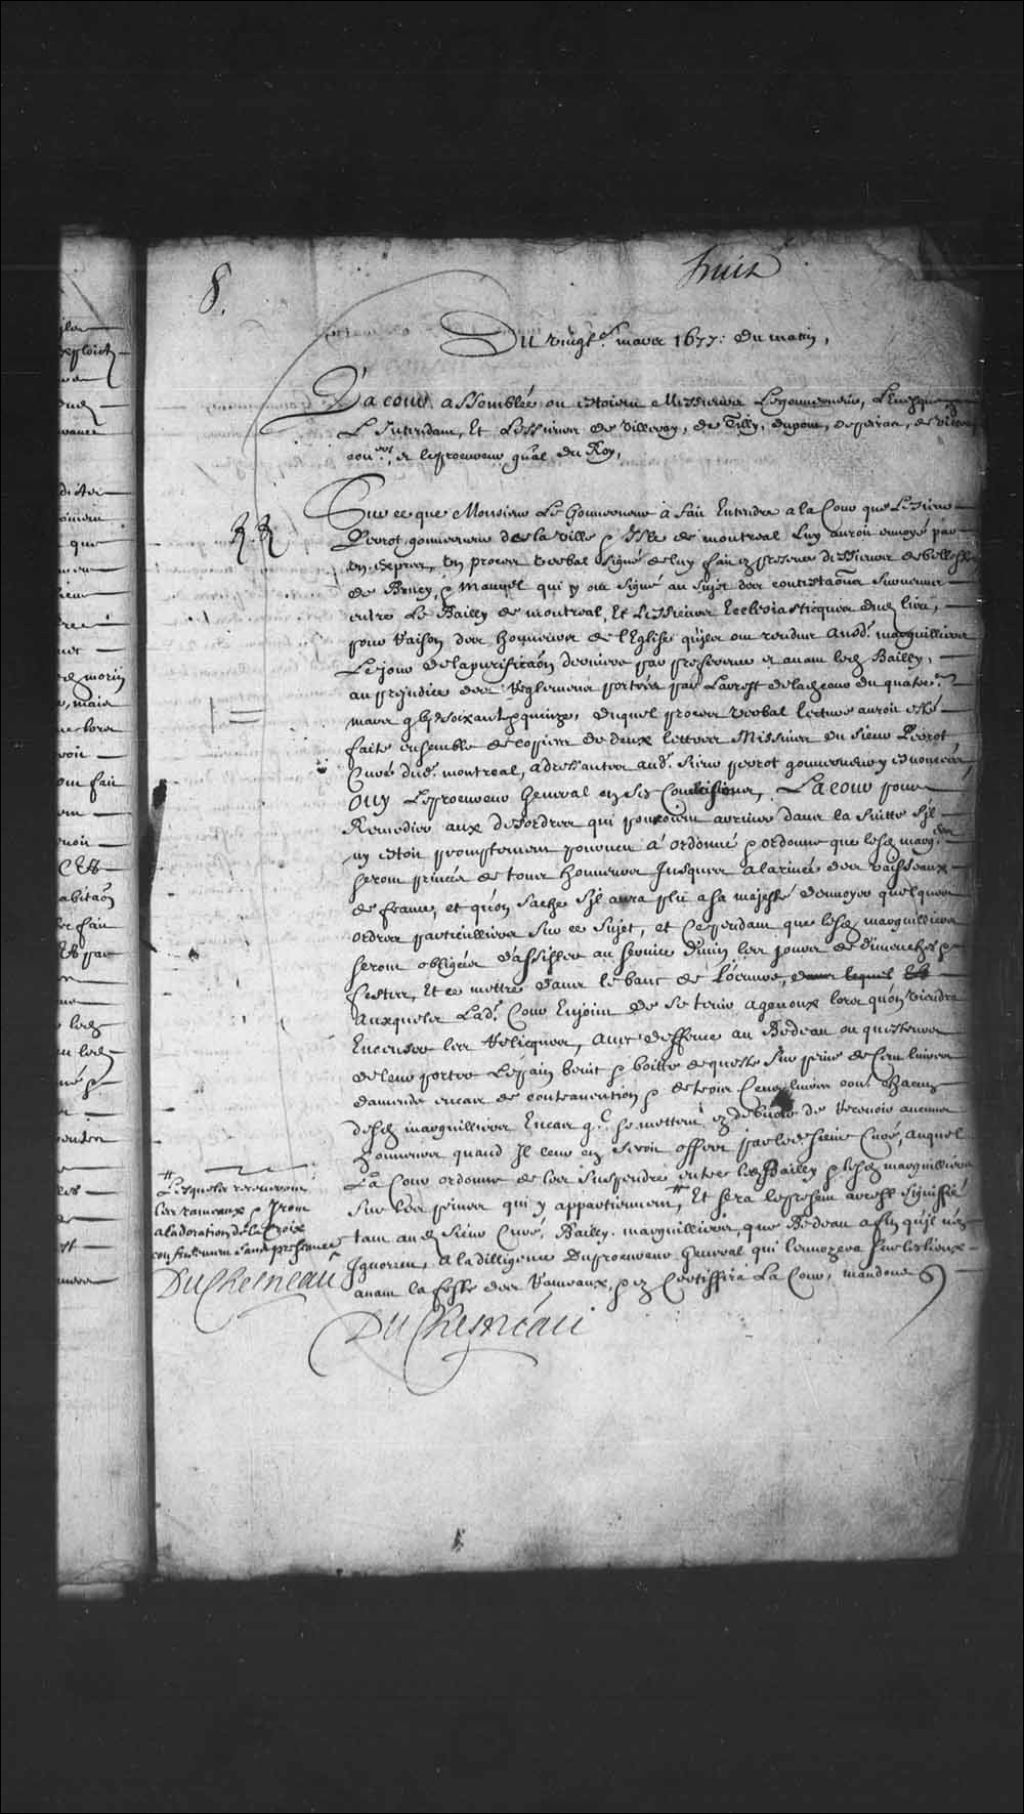 8.
huit
Du vingt.e mars 1677: du matin,
La cour assemblée ou estoient Messieurs Le gouverneur, L'Evesque
L'Intendant, Et Les Sieurs de Villeray, de Tilly, dupont, depeiras, de Vitré
con.ers et le procureur gñal du Roy,
Sur ce que Monsieur Le Gouverneur à fait Entendre a la Cour que Le Sieur
Perrot gouverneur de la ville & Isle de montreal Luy auroit envoyé par
un exprez, un procez verbal signé de luy fait en presence des Sieurs
de Brucy, & qui y ont signé au sujet des contestaõns survenues
entre Le Bailly de montreal, Et Les Sieurs Ecclesiastiques dud. lieu,
pour Raison des honneurs de l'Eglise qu'jls ont rendus ausd. marguilliers
Le jour de la purificaõn derniere par preference et avant led. Bailly,
au prejudice des Reglemens portez par L'arrest de lad. cour du
mars soixante quinze, duquel procez verbal lecture auroit esté
faite ensemble de copies de deux lettres Missives du sieur Perrot
Curé dud. montreal, adressantes aud. sieur perrot gouverneur y
ouy Le procureur General en ses Conclusions, La cour pour
Remedier aux desordres qui pouroient arriver dans la suitte s'jl
ny estoit promptement pourveu a ordonné & ordonne que lesd. marg.ers
seront privez de tous honneurs Jusques a larivée des vaisseaux
de france, et qu'on sache s'jl aura plû a sa majesté d'envoyer quelques
ordres particulliers sur ce sujet, et Cependant que lesd. marguilliers
seront obligez d'assister au service divin les jours de dimenches &
festes, Et se mettre dans le banc de L'oeuvre,
Auxquels Lad. Cour Enjoint de se tenir a genoux lors qu'on viendra
Encenser les Reliques, avec deffence au Bedeau ou questeurs
de leur porter Le pain benit & boitte de queste sur peine de Cent livres
damende en cas de contravention & de trois Cens livres contre chacun
desd. marguilliers En cas q.e se mettent en debvoir de Recevoir aucuns
honneurs quand Il leur en seroit offert par led. sieur Curé, auquel
La Cour ordonne de les suspendre entre led. Bailly & lesd. marguilliers
sur les peines qui y appartiennent,# Et sera le present arrest signiffié
tant aud. sieur Curé, Bailly, marguilliers, que Bedeau afin qu'jl n'en
Ignorent, A la dilligence du procureur General qui l'envoyera sur les lieux
avant la feste des Rameaux, & en Certiffira La Cour, mandons
DuChesneau
# Lesquels recevront
les rameaux & Iront
a ladoration de la Croix
confusement sans preferance
DuChesneau